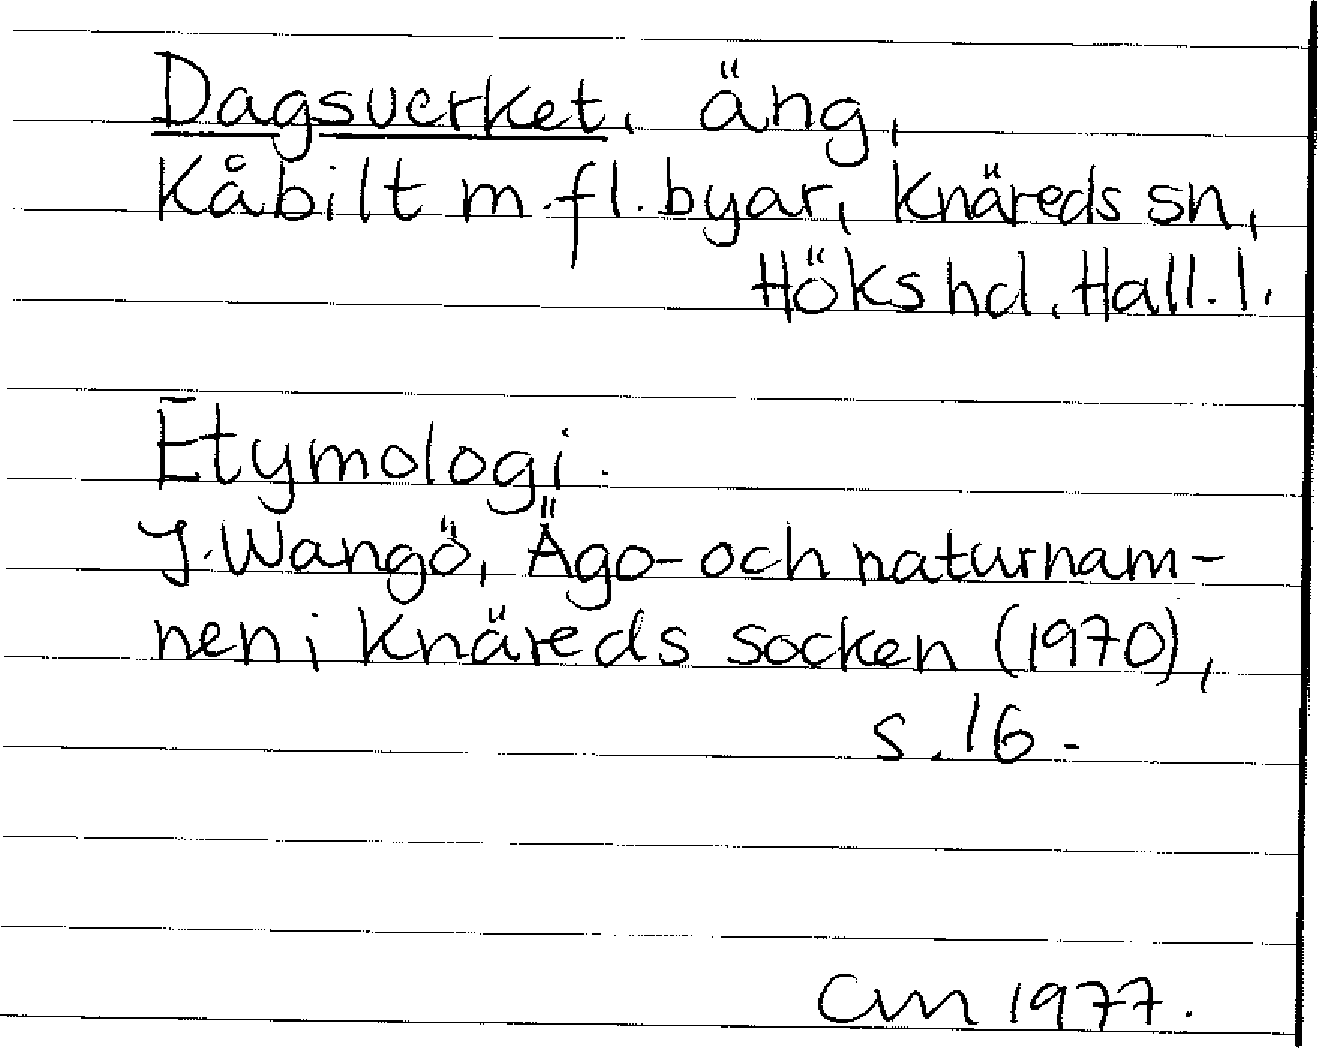 Dagsverket, äng,
Kåbilt m.fl. byar, Knäreds sn,
Höks hd, Hall.l.
Etymologi.
J. Wangö, Ägo- och naturnam-
nen i Knäreds socken (1970),
s. 16.
Cun 1977.